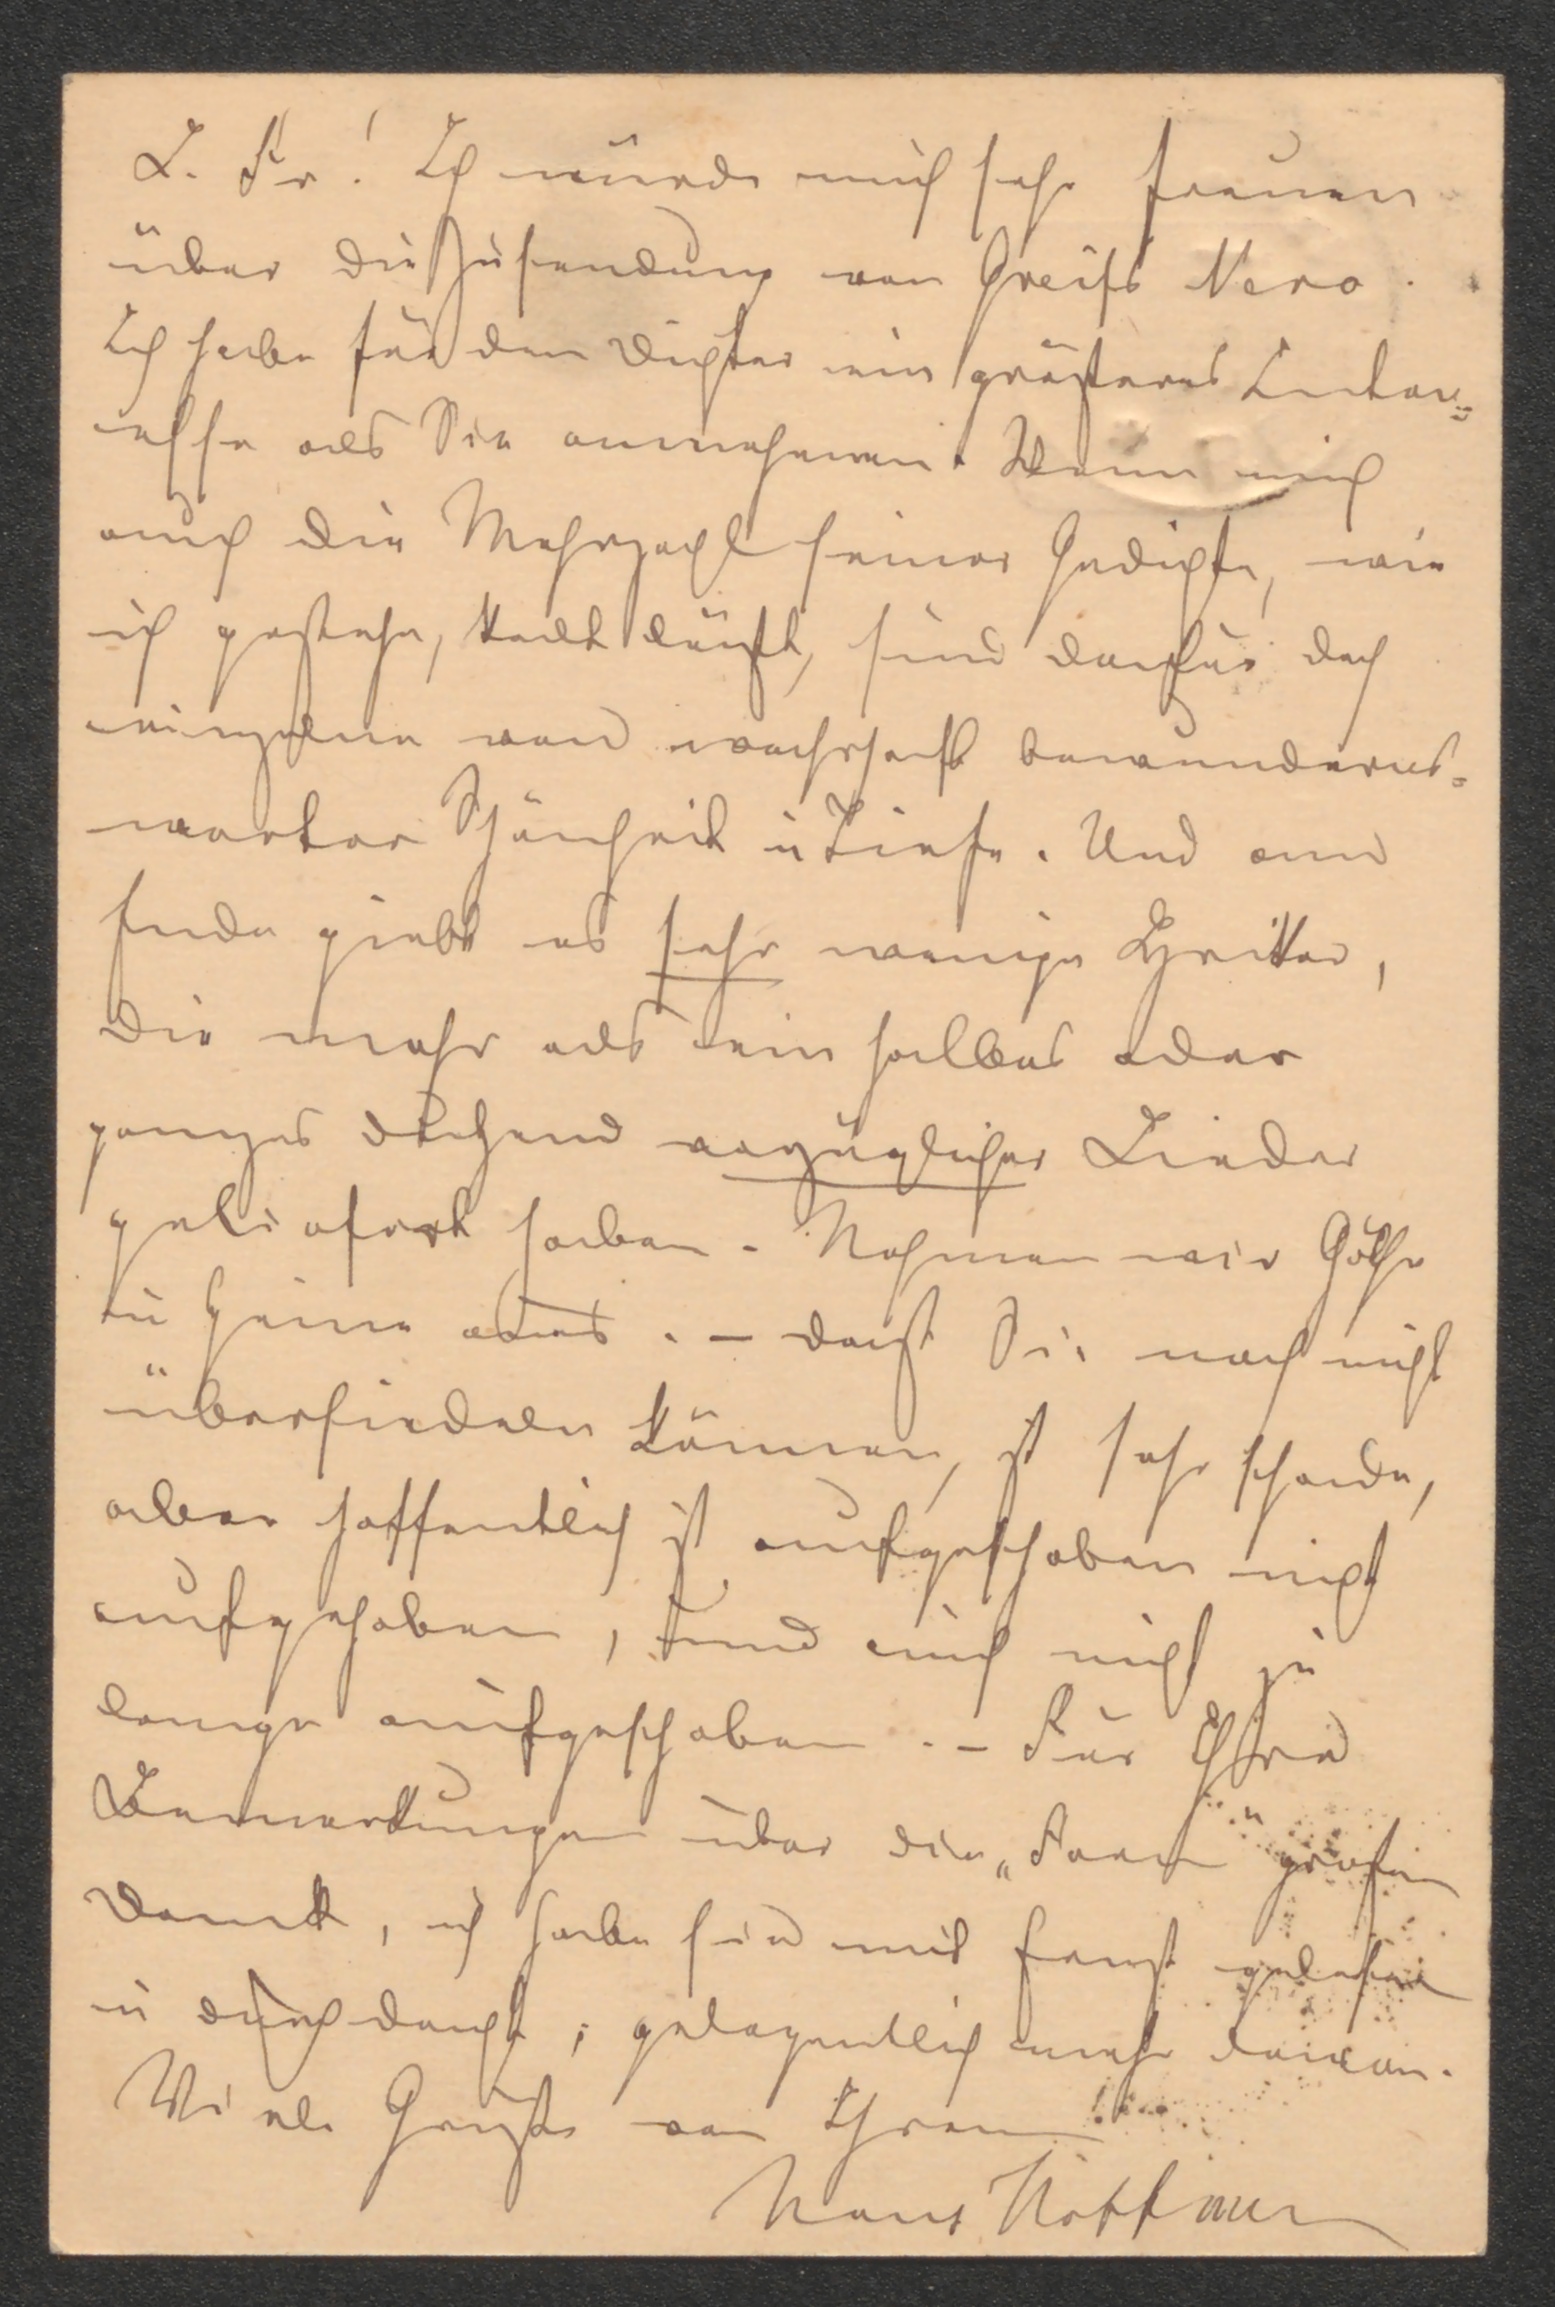 L. Fr! Ich würde mich sehr freuen
über die Zusendung von Greifs Nero.
Ich habe für den Dichter ein größeres Inter=
esse als Sie annehmen. Wenn mich
auch die Mehrzahl seiner Gedichte, wie
ich gestehe, kalt läußt, sind dafür doch
einzelne von wahrhaft bewunderns-
werter Schönheit u Tiefe. Und am
Ende giebt es sehr wenige Lyriker,
die mehr als ein halbes oder
ganzes Dutzend vorzüglicher Lieder
geliefert haben. Nehmen wir Göthe
u Heine aus. – Daß Sie noch nicht
übersiedeln können, ist sehr schade,
aber hoffentlich ist aufgeschoben nicht
aufgehoben, und auch nicht zu
lange aufgeschoben. – Für Ihre
Bemerkungen über die „Form" großen
Dank, ich habe sie mit Ernst gelesen
u durchdacht; gelegentlich mehr davon.
Viele Grüße von Ihrem
Hans Hoffmann